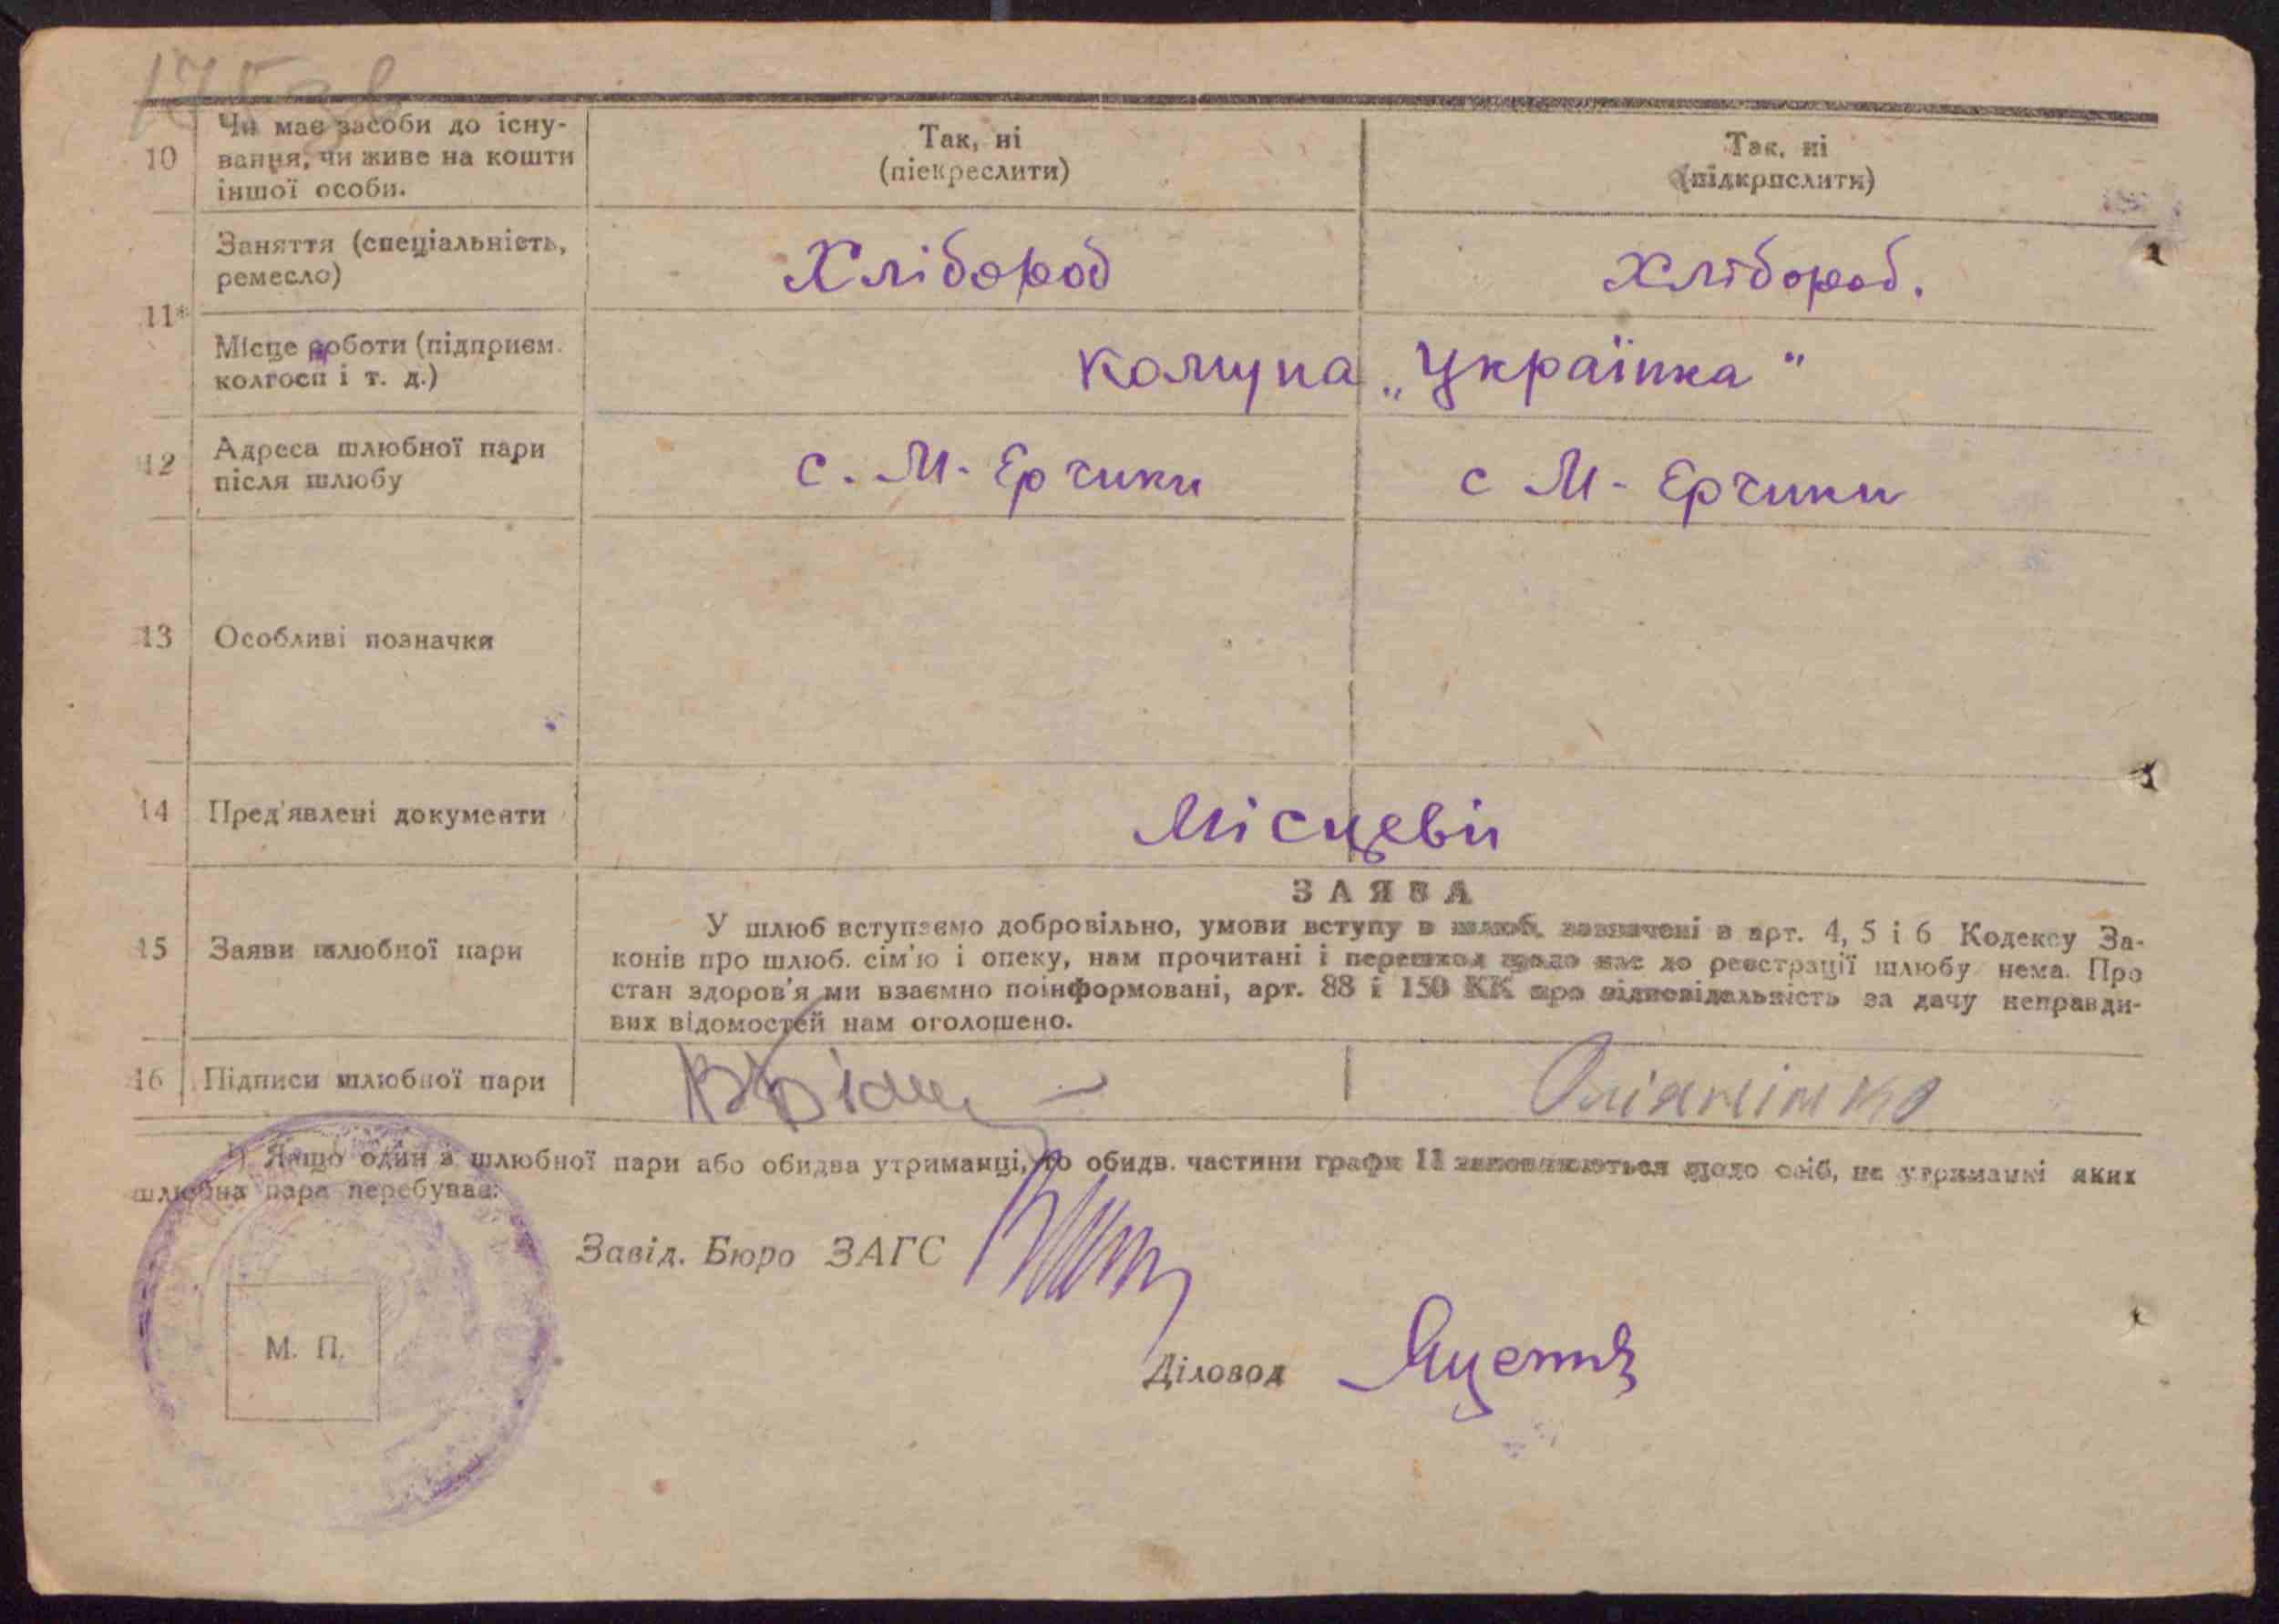 175зв
10 Чи має засоби до існу-
вання, чи живе на кошти
іншої особи.
Так, ні
(піекреслити)
Так, ні
(підкрпслити)
Заняття (спеціальність,
ремесло)
Хлібороб
хлібороб.
11*
Місце роботи (підприєм.
колгосп і т. д.)
комуна „Українка"
12 Адреса шлюбної пари
після шлюбу
с. М-Єрчики
с М-Єрчики
13 Особливі позначки
14 Пред'явлені документи
Місцеві
ЗАЯВА
15 Заяви шлюбної пари
У шлюб вступаємо добровільно, умови вступу в шлюб, зазначені в арт. 4, 5 і 6 Кодексу За-
конів про шлюб. сім'ю і опеку, нам прочитані і перешкод щодо нас до реєстрації шлюбу нема. Про
стан здоров'я ми взаємно поінформовані, арт. 88 і 150 КК про відповідальність за дачу неправди-
вих відомостей нам оголошено.
16 Підписи шлюбної пари
1) Якщо один з шлюбної пари або обидва утриманці, то обидв. частини графи 11 заповнюються щодо осіб, на утриманні яких
шлюбна пара перебуває.
Завід. Бюро ЗАГС
М. П.
Діловод